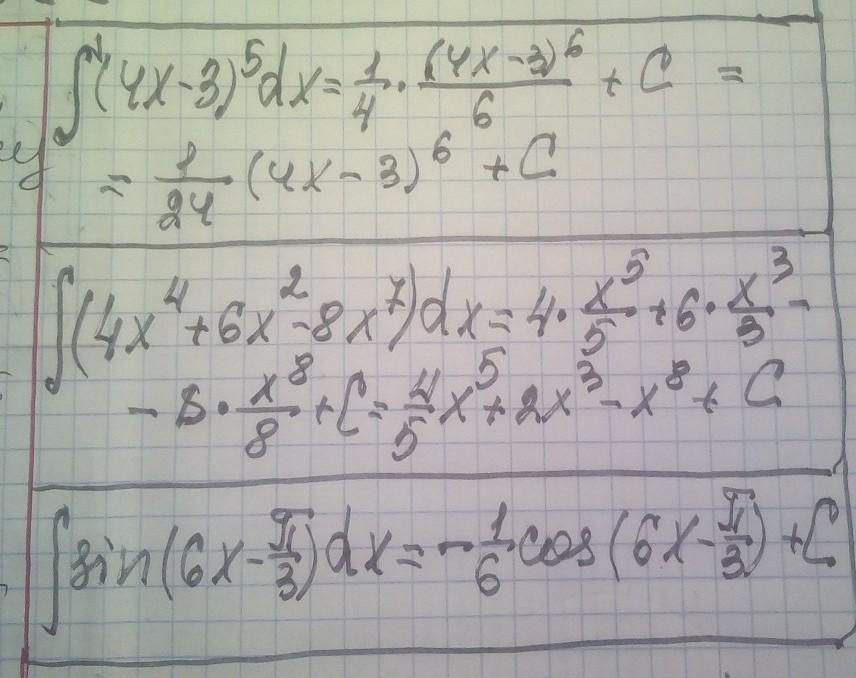 ∫(4x-3)⁵dx = 1/4 · (4x-3)⁶/6 + C =
= 1/24 (4x-3)⁶ + C
∫(4x⁴+6x²-8x⁷)dx = 4 · x⁵/5 + 6 · x³/3 -
- 8 · x⁸/8 + C = 4/5 x⁵ + 2x³ - x⁸ + C
∫sin(6x-π/3)dx = -1/6 cos(6x-π/3) + C